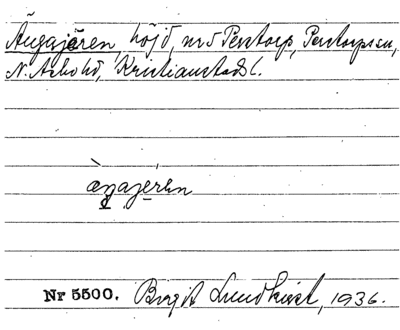 Ängajären, höjd, nr 5 Perstorp, Perstorps sn,
N. Åsbo hd, Kristianstads l.
æŋajęrən
Nr 5500. Birgit Lundkvist, 1936.